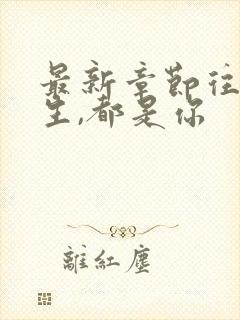 最新章節往
生,都是你
離紅塵